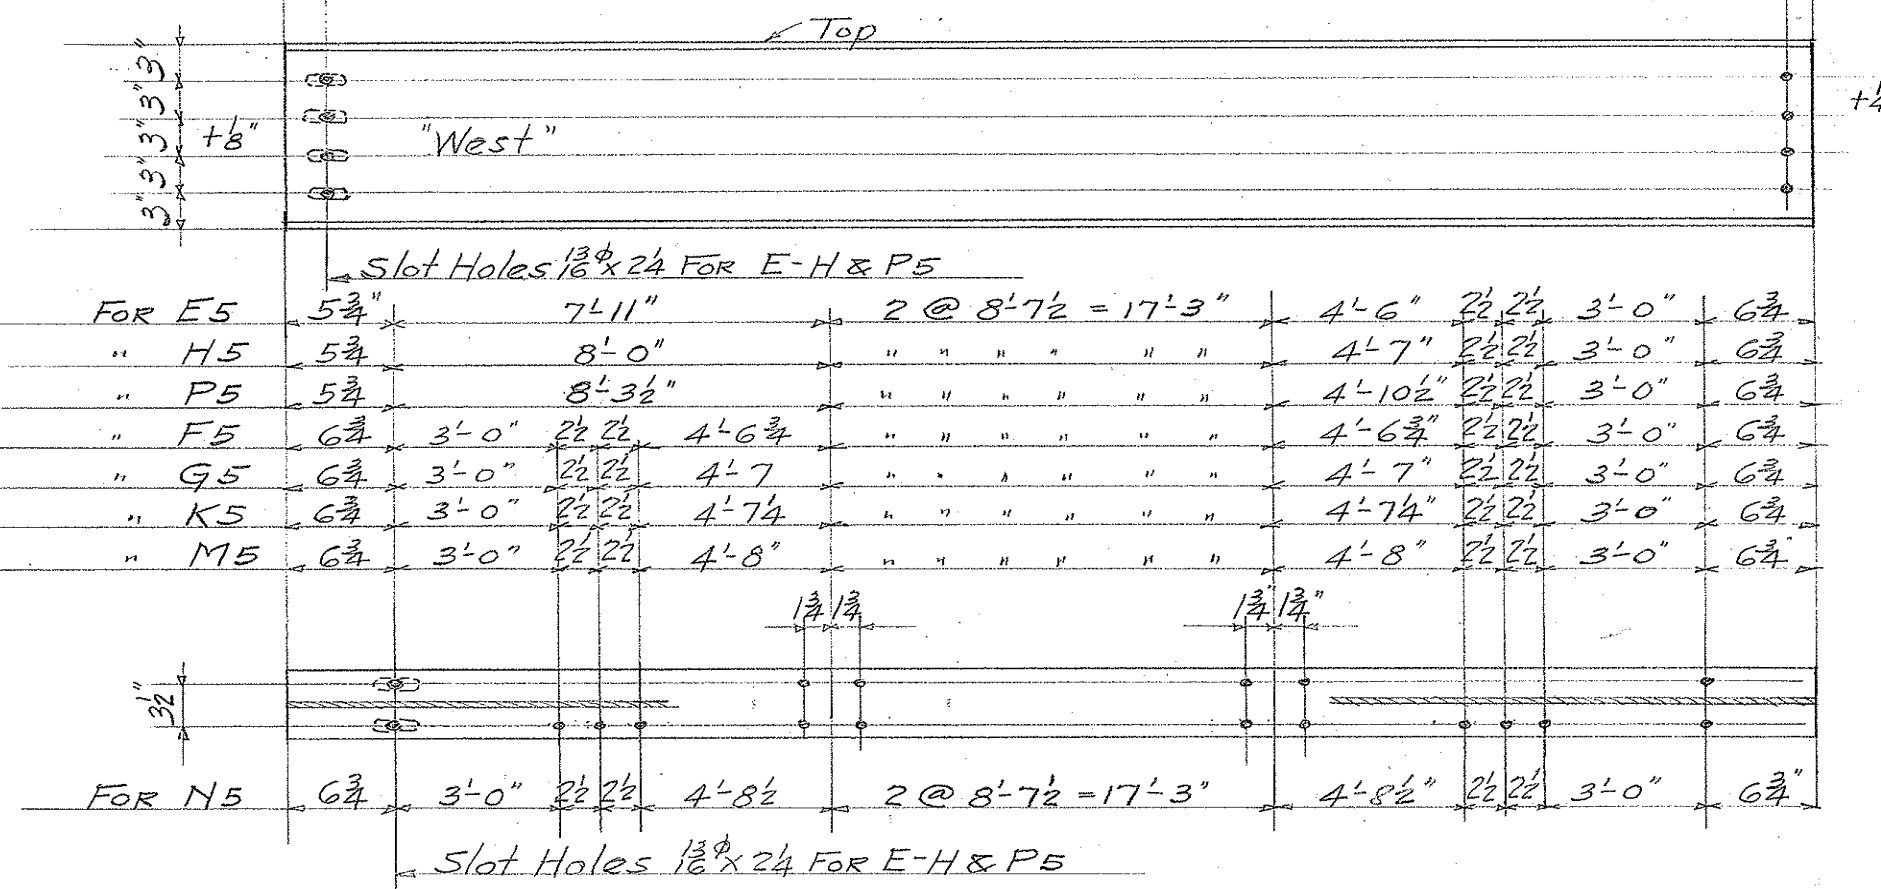 Top
3" 3" 3" 3" 3"
+1/8"
"West"
+1/4
Slot Holes 13/16 φ x 2 1/4 FOR E-H & P5
FOR E5 5 3/4" 7'-11" 2 @ 8'-7 1/2 = 17'-3" 4'-6" 2 1/2 2 1/2 3'-0" 6 3/4
" H5 5 3/4 8'-0" " " " " " " 4'-7" 2 1/2 2 1/2 3'-0" 6 3/4
" P5 5 3/4 8'-3 1/2" " " " " " " 4'-10 1/2" 2 1/2 2 1/2 3'-0" 6 3/4
" F5 6 3/4 3'-0" 2 1/2 2 1/2 4'-6 3/4 " " " " " " 4'-6 3/4" 2 1/2 2 1/2 3'-0" 6 3/4
" G5 6 3/4 3'-0" 2 1/2 2 1/2 4'-7 " " " " " " 4'-7" 2 1/2 2 1/2 3'-0" 6 3/4
" K5 6 3/4 3'-0" 2 1/2 2 1/2 4'-7 1/4 " " " " " " 4'-7 1/4" 2 1/2 2 1/2 3'-0" 6 3/4
" M5 6 3/4 3'-0" 2 1/2 2 1/2 4'-8" " " " " " " 4'-8" 2 1/2 2 1/2 3'-0" 6 3/4"
1 3/4 1 3/4 1 3/4" 1 3/4"
3 1/2"
FOR N5 6 3/4 3'-0" 2 1/2 2 1/2 4'-8 1/2 2 @ 8'-7 1/2 = 17'-3" 4'-8 1/2" 2 1/2 2 1/2 3'-0" 6 3/4"
Slot Holes 13/16 φ x 2 1/4 FOR E-H & P5